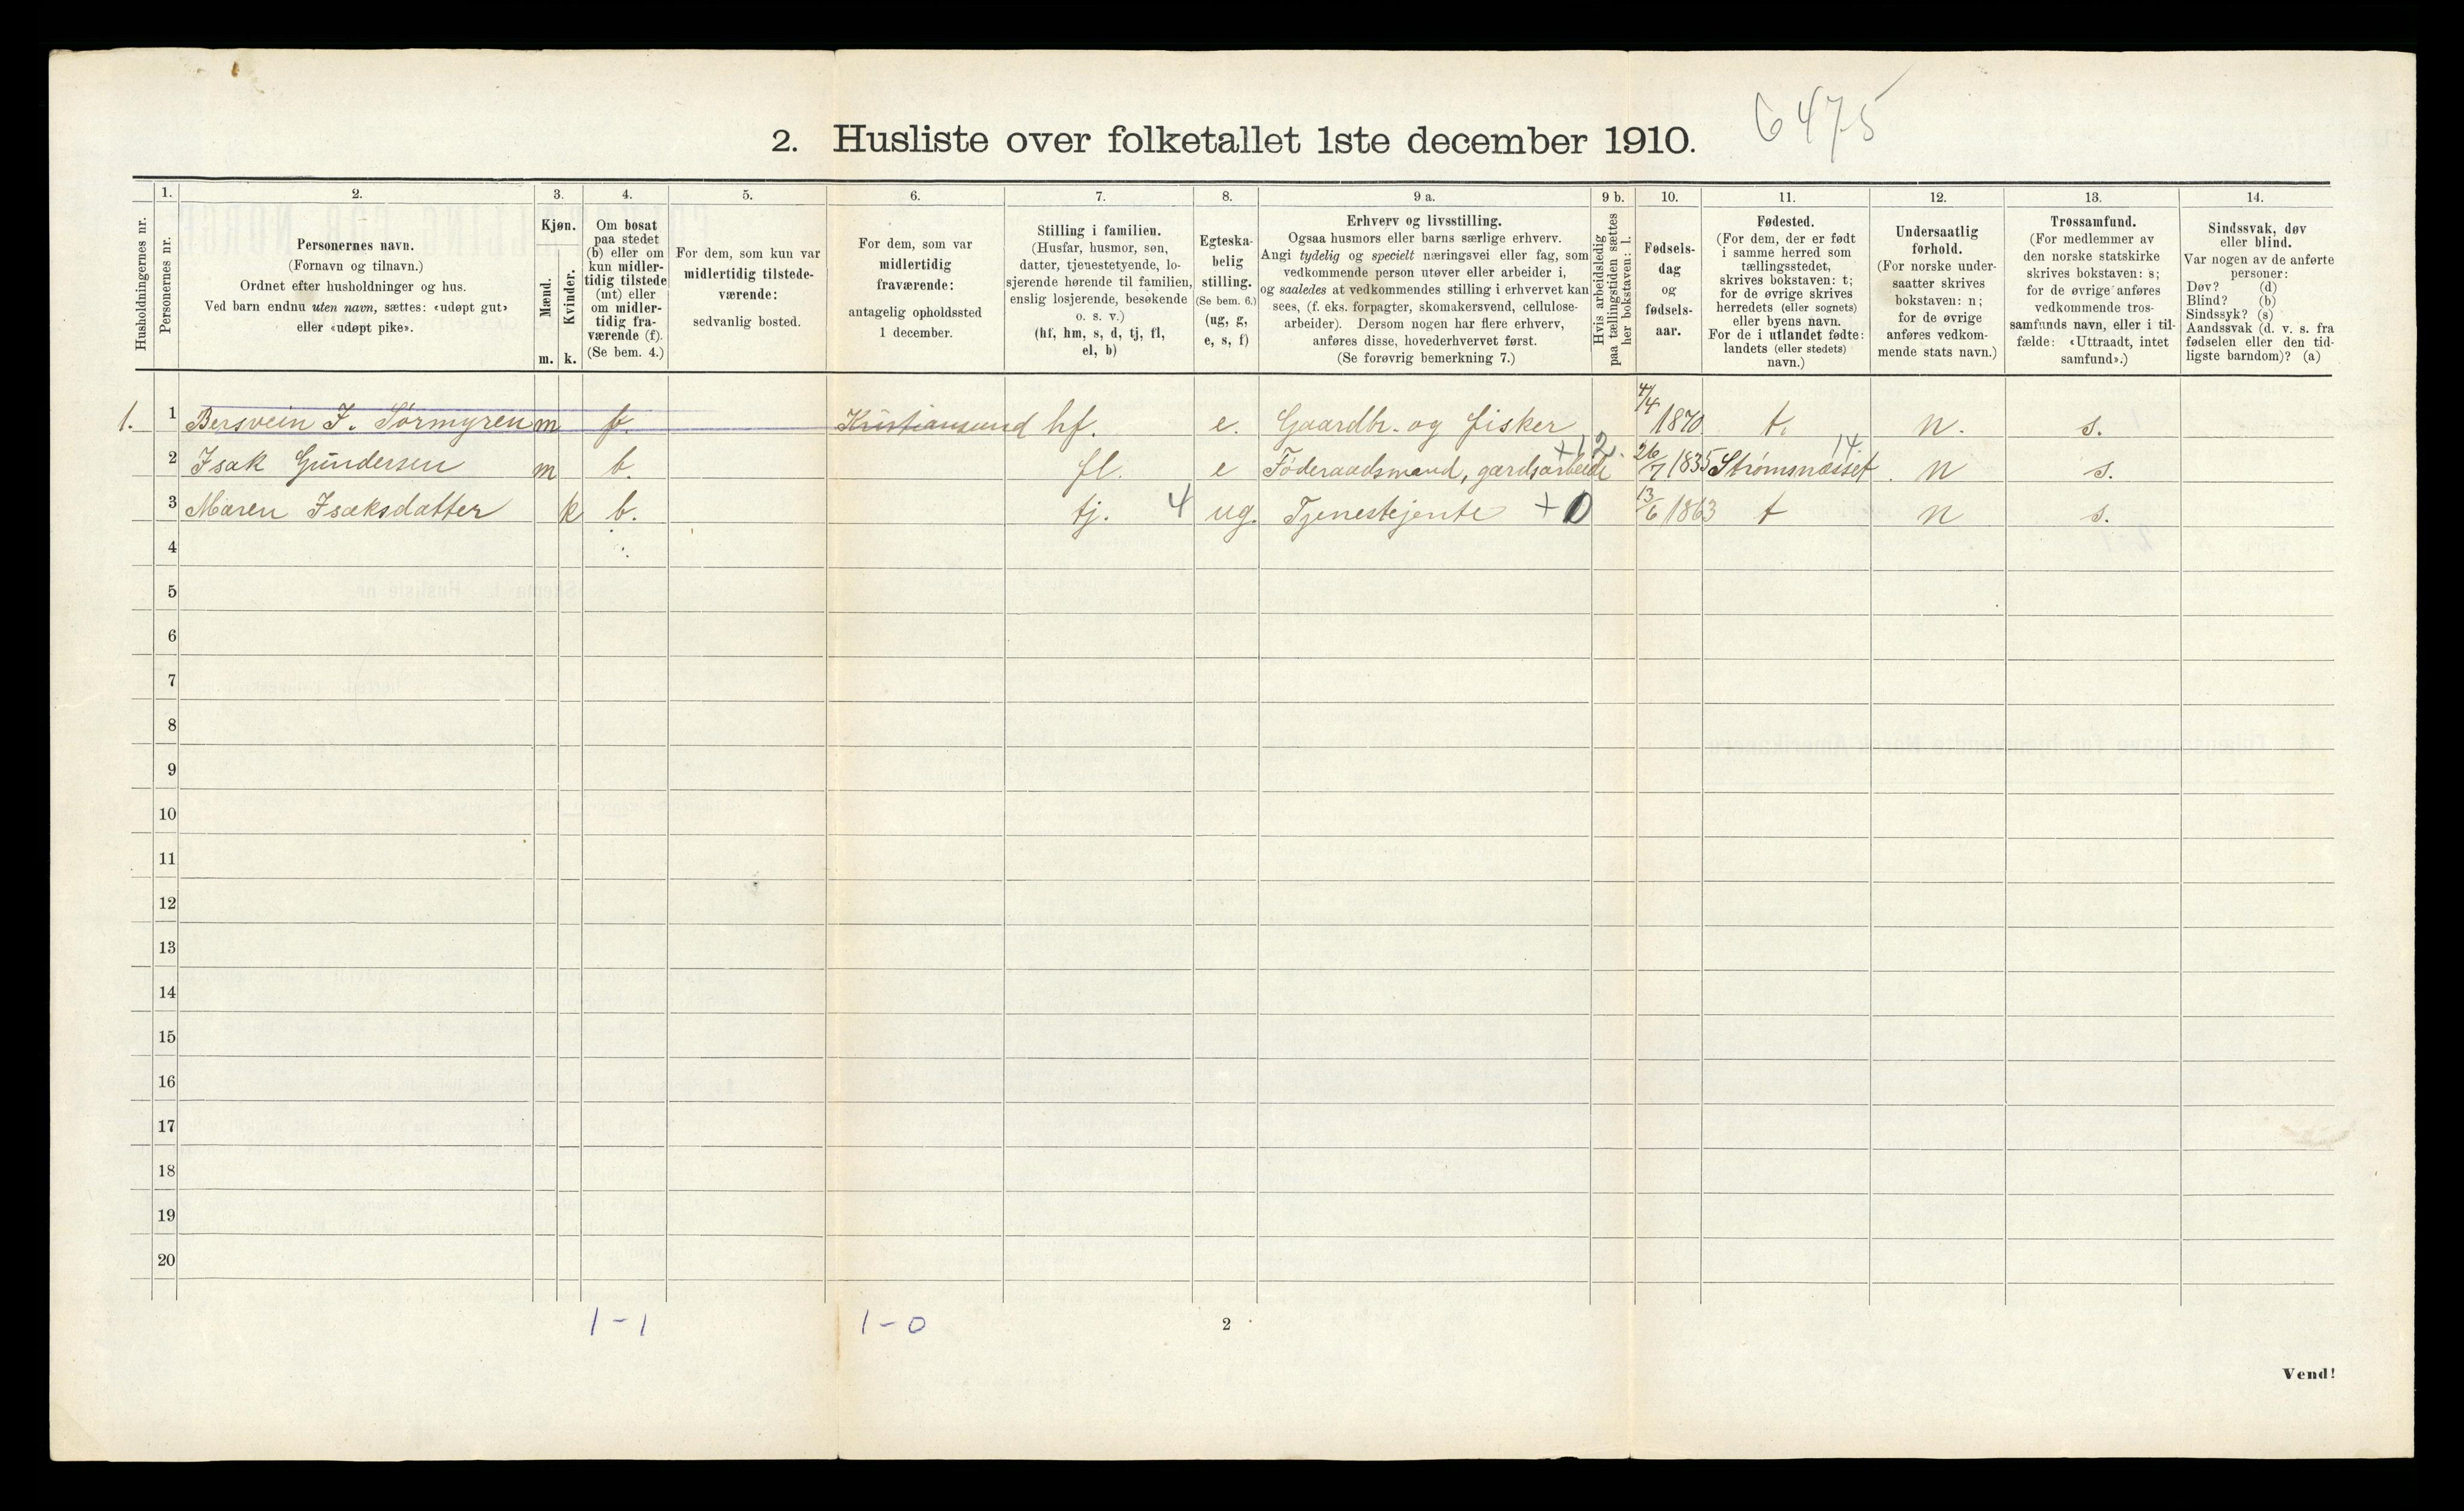 6475
2. Husliste over folketallet 1ste december 1910.
Husholdningernes nr.
1.
Personernes nr.
2.
Personernes navn.
(Fornavn og tilnavn.)
Ordnet efter husholdninger og hus.
Ved barn endnu uten navn, sættes: «udøpt gut»
eller «udøpt pike».
3.
Kjøn.
Mænd.
Kvinder.
m. k.
4.
Om bosat
paa stedet
(b) eller om
kun midler-
tidig tilstede
(mt) eller
om midler-
tidig fra-
værende (f).
(Se bem. 4.)
5.
For dem, som kun var
midlertidig tilstede-
værende:
sedvanlig bosted.
6.
For dem, som var
midlertidig
fraværende:
antagelig opholdssted
1 december.
7.
Stilling i familien.
(Husfar, husmor, søn,
datter, tjenestetyende, lo-
sjerende hørende til familien,
enslig losjerende, besøkende
o. s. v.)
(hf, hm, s, d, tj, fl,
el, b)
8.
Egteska-
belig
stilling.
(Se bem. 6.)
(ug, g,
e, s, f)
9 a.
Erhverv og livsstilling.
Ogsaa husmors eller barns særlige erhverv.
Angi tydelig og specielt næringsvei eller fag, som
vedkommende person utøver eller arbeider i,
og saaledes at vedkommendes stilling i erhvervet kan
sees, (f. eks. forpagter, skomakersvend, cellulose-
arbeider). Dersom nogen har flere erhverv,
anføres disse, hovederhvervet først.
(Se forøvrig bemerkning 7.)
9 b.
Hvis arbeidsledig
paa tællingstiden sættes
her bokstaven: l.
10.
Fødsels-
dag
og
fødsels-
aar.
11.
Fødested.
(For dem, der er født
i samme herred som
tællingsstedet,
skrives bokstaven: t;
for de øvrige skrives
herredets (eller sognets)
eller byens navn.
For de i utlandet fødte:
landets (eller stedets)
navn.)
12.
Undersaatlig
forhold.
(For norske under-
saatter skrives
bokstaven: n;
for de øvrige
anføres vedkom-
mende stats navn.)
13.
Trossamfund.
(For medlemmer av
den norske statskirke
skrives bokstaven: s;
for de øvrige anføres
vedkommende tros-
samfunds navn, eller i til-
fælde: «Uttraadt, intet
samfund».)
14.
Sindssvak, døv
eller blind.
Var nogen av de anførte
personer:
Døv? (d)
Blind? (b)
Sindssyk? (s)
Aandssvak (d. v. s. fra
fødselen eller den tid-
ligste barndom)? (a)
1. 1 Bersvein I. Tørmyren m f. Kristiansund hf. e. Gaardbr. og fisker 4/4 1870 t. n. s.
2 Isak Gundersen m b. fl. e Føderaadsmand, gardsarbeide +12. 26/7 1835 Strømsnæsset 14 n s.
3 Maren Isaksdatter k b. tj. 4 ug. Tjenestejente +0 13/6 1863 t n s.
4
5
6
7
8
9
10
11
12
13
14
15
16
17
18
19
20
1-1 1-0 2
Vend!